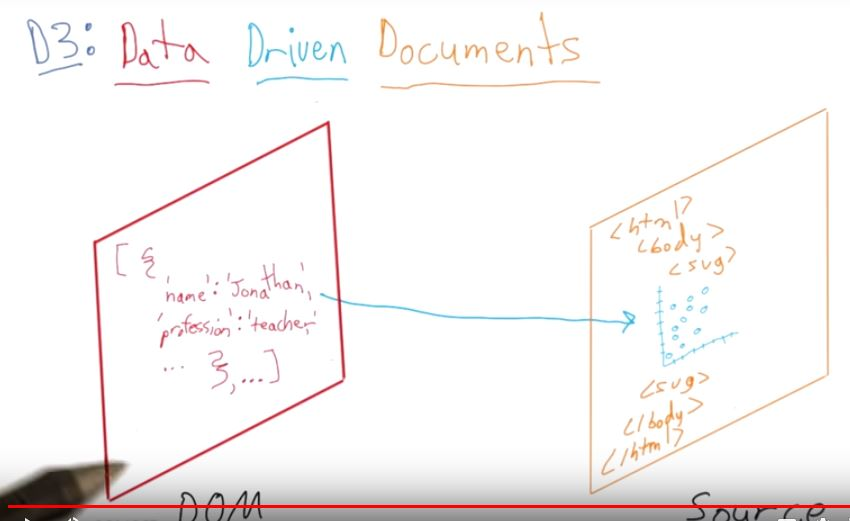 D3: Data Driven Documents
[ {
'name': 'Jonathan',
'profession': 'teacher,'
... }, ... ]
<html>
<body>
<svg>
<svg>
</body>
</html>
DOM
Source